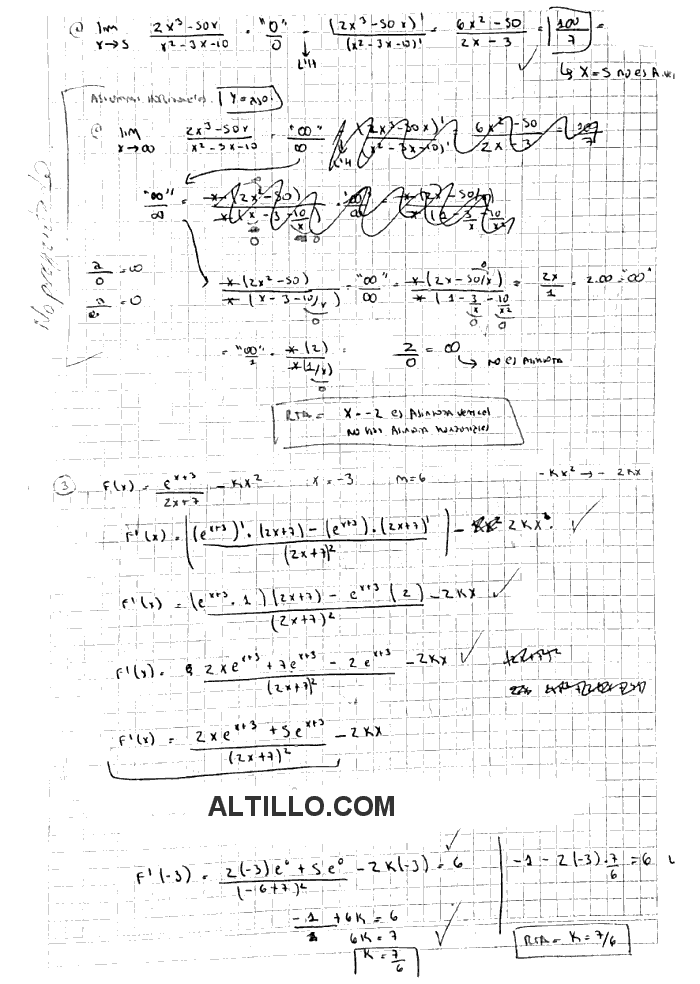 @ lim x→5 2x³-50x / x²-3x-10 = "0"/0 = (2x³-50x)' / (x²-3x-10)' = 6x²-50 / 2x-3 = 100/7 =
L'H
↳ X=5 no es A.
Asintotas Horizontales Y=
@ lim x→∞ 2x³-50x / x²-3x-10 = "∞"/∞ (2x³-50x)' / (x²-3x-10)' = 6x²-50 / 2x-3 = 100/7
L'H
"∞"/∞ = x(2x²-50) / x(x-3-10/x) = "∞"/∞ = x(2x-50/x) / x(1-3/x-10/x²)
No presenta
2/0 = ∞
x(2x²-50) / x(x-3-10/x) = "∞"/∞ = x(2x-50/x) / x(1-3/x-10/x²) = 2x/1 = 2.∞ = "∞"
= 0
= "∞"/1 = x(2) / x(1/x) = 2/0 = ∞ → no es Asintota
RTA = X=-2 es Asintota vertical
no hay Asintota horizontal
③ F(x) = e^(x+3) / 2x+7 - Kx² x=-3 m=6 -Kx² → - 2Kx
F'(x) = [(e^(x+3))' . (2x+7) - (e^(x+3)) . (2x+7)' / (2x+7)²] - 2Kx
F'(x) = (e^(x+3) . 1)(2x+7) - e^(x+3) (2) / (2x+7)² - 2Kx
F'(x) = 2xe^(x+3) + 7e^(x+3) - 2e^(x+3) / (2x+7)² - 2Kx
F'(x) = 2xe^(x+3) + 5e^(x+3) / (2x+7)² - 2Kx
ALTILLO.COM
F'(-3) = 2(-3)e⁰ + 5e⁰ / (-6+7)² - 2K(-3) = 6
-1 - 2(-3).7/6 = 6
-1/1 + 6K = 6
6K = 7
K = 7/6
RTA = K = 7/6